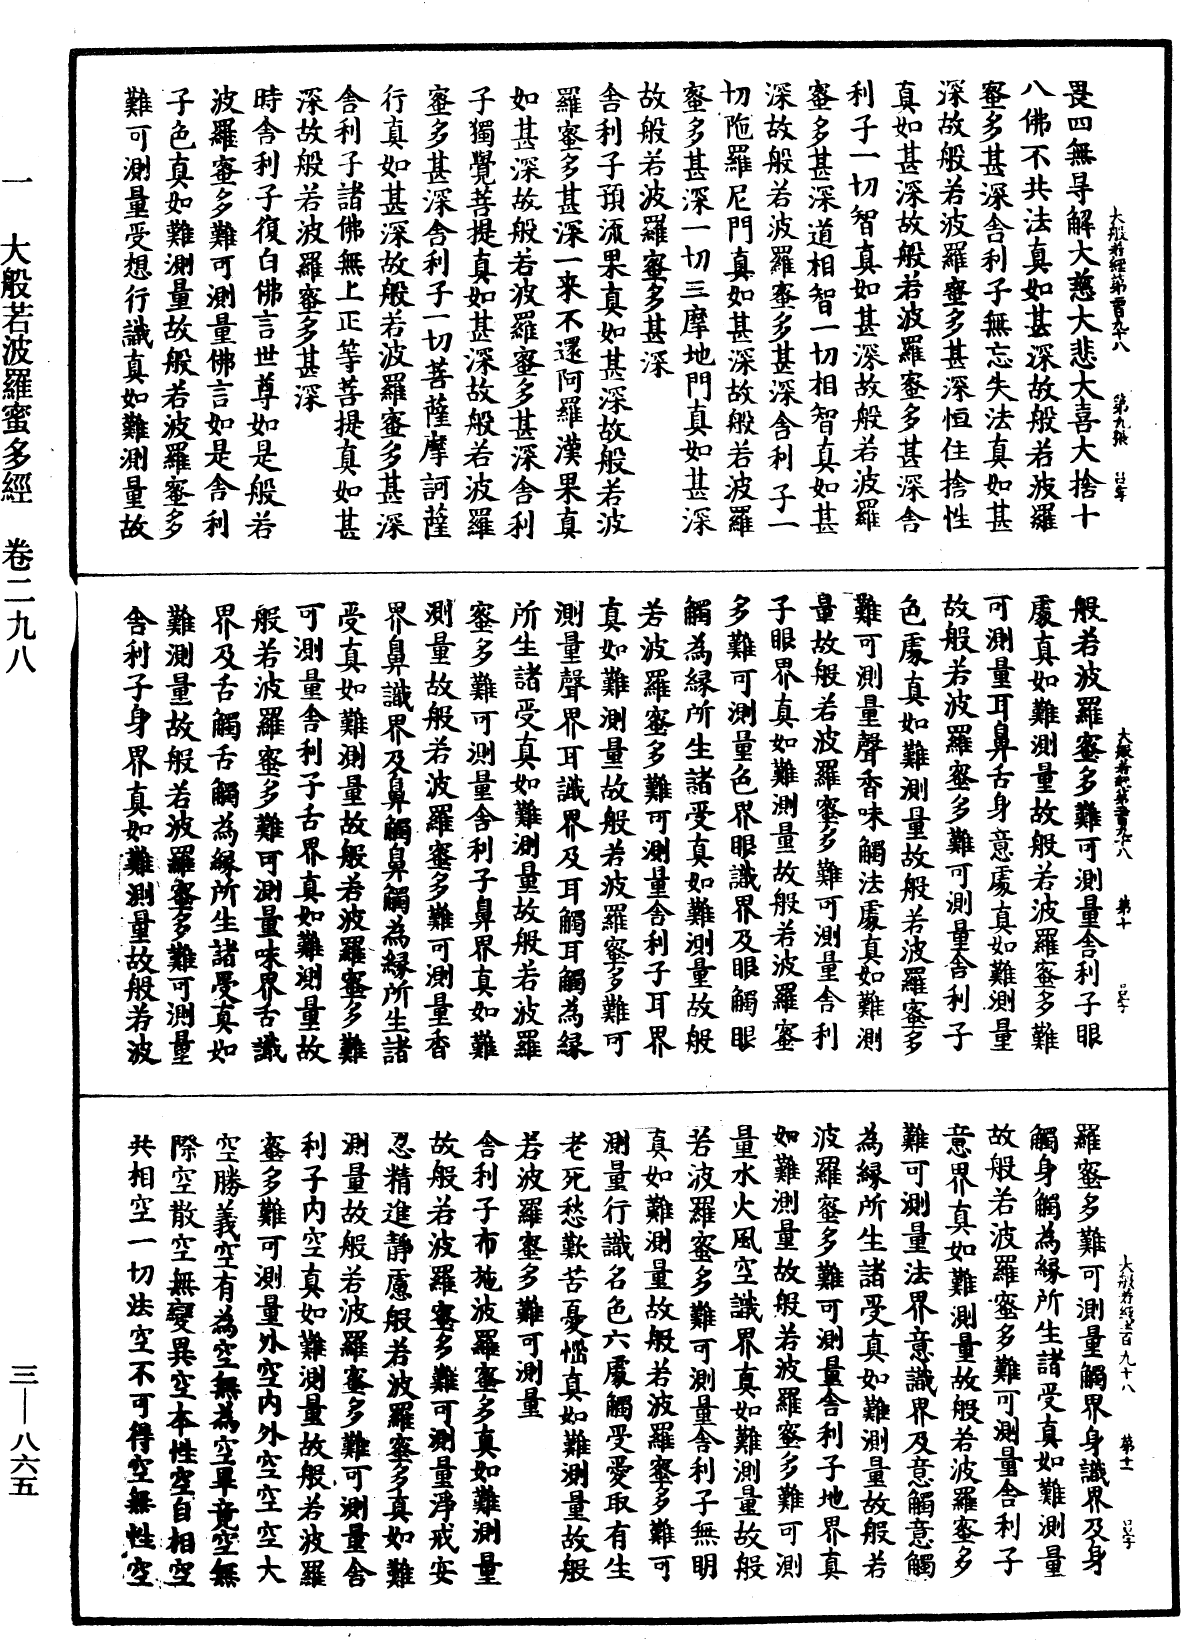 畏四無㝵解大慈大悲大喜大捨十
八佛不共法真如甚深故般若波羅
蜜多甚深舍利子無忘失法真如甚
深故般若波羅蜜多甚深恒住捨性
真如甚深故般若波羅蜜多甚深舍
利子一切智真如甚深故般若波羅
蜜多甚深道相智一切相智真如甚
深故般若波羅蜜多甚深舍利子一
切陁羅尼門真如甚深故般若波羅
蜜多甚深一切三摩地門真如甚深
故般若波羅蜜多甚深
舍利子預流果真如甚深故般若波
羅蜜多甚深一来不還阿羅漢果真
如甚深故般若波羅蜜多甚深舍利
子獨覺菩提真如甚深故般若波羅
蜜多甚深舍利子一切菩薩摩訶薩
行真如甚深故般若波羅蜜多甚深
舍利子諸佛無上正等菩提真如甚
深故般若波羅蜜多甚深
時舍利子復白佛言世尊如是般若
波羅蜜多難可測量佛言如是舍利
子色真如難測量故般若波羅蜜多
難可測量受想行識真如難測量故
大般若經第二百九十八 第九張
般若波羅蜜多難可測量舍利子眼
處真如難測量故般若波羅蜜多難
可測量耳鼻舌身意處真如難測量
故般若波羅蜜多難可測量舍利子
色處真如難測量故般若波羅蜜多
難可測量聲香味觸法處真如難測
量故般若波羅蜜多難可測量舍利
子眼界真如難測量故般若波羅蜜
多難可測量色界眼識界及眼觸眼
觸為緣所生諸受真如難測量故般
若波羅蜜多難可測量舍利子耳界
真如難測量故般若波羅蜜多難可
測量聲界耳識界及耳觸耳觸為緣
所生諸受真如難測量故般若波羅
蜜多難可測量舍利子鼻界真如難
測量故般若波羅蜜多難可測量香
界鼻識界及鼻觸鼻觸為緣所生諸
受真如難測量故般若波羅蜜多難
可測量舍利子舌界真如難測量故
般若波羅蜜多難可測量味界舌識
界及舌觸舌觸為緣所生諸受真如
難測量故般若波羅蜜多難可測量
舍利子身界真如難測量故般若波
大般若經第二百九十八 第十
羅蜜多難可測量觸界身識界及身
觸身觸為緣所生諸受真如難測量
故般若波羅蜜多難可測量舍利子
意界真如難測量故般若波羅蜜多
難可測量法界意識界及意觸意觸
為緣所生諸受真如難測量故般若
波羅蜜多難可測量舍利子地界真
如難測量故般若波羅蜜多難可測
量水火風空識界真如難測量故般
若波羅蜜多難可測量舍利子無明
真如難測量故般若波羅蜜多難可
測量行識名色六處觸受愛取有生
老死愁歎苦憂惱真如難測量故般
若波羅蜜多難可測量
舍利子布施波羅蜜多真如難測量
故般若波羅蜜多難可測量淨戒安
忍精進靜慮般若波羅蜜多真如難
測量故般若波羅蜜多難可測量舍
利子內空真如難測量故般若波羅
蜜多難可測量外空內外空空空大
空勝義空有為空無為空畢竟空無
際空散空無變異空本性空自相空
共相空一切法空不可得空無性空
大般若經二百九十八 第十一
一 大般若波羅蜜多經 卷二九八
三—八六五